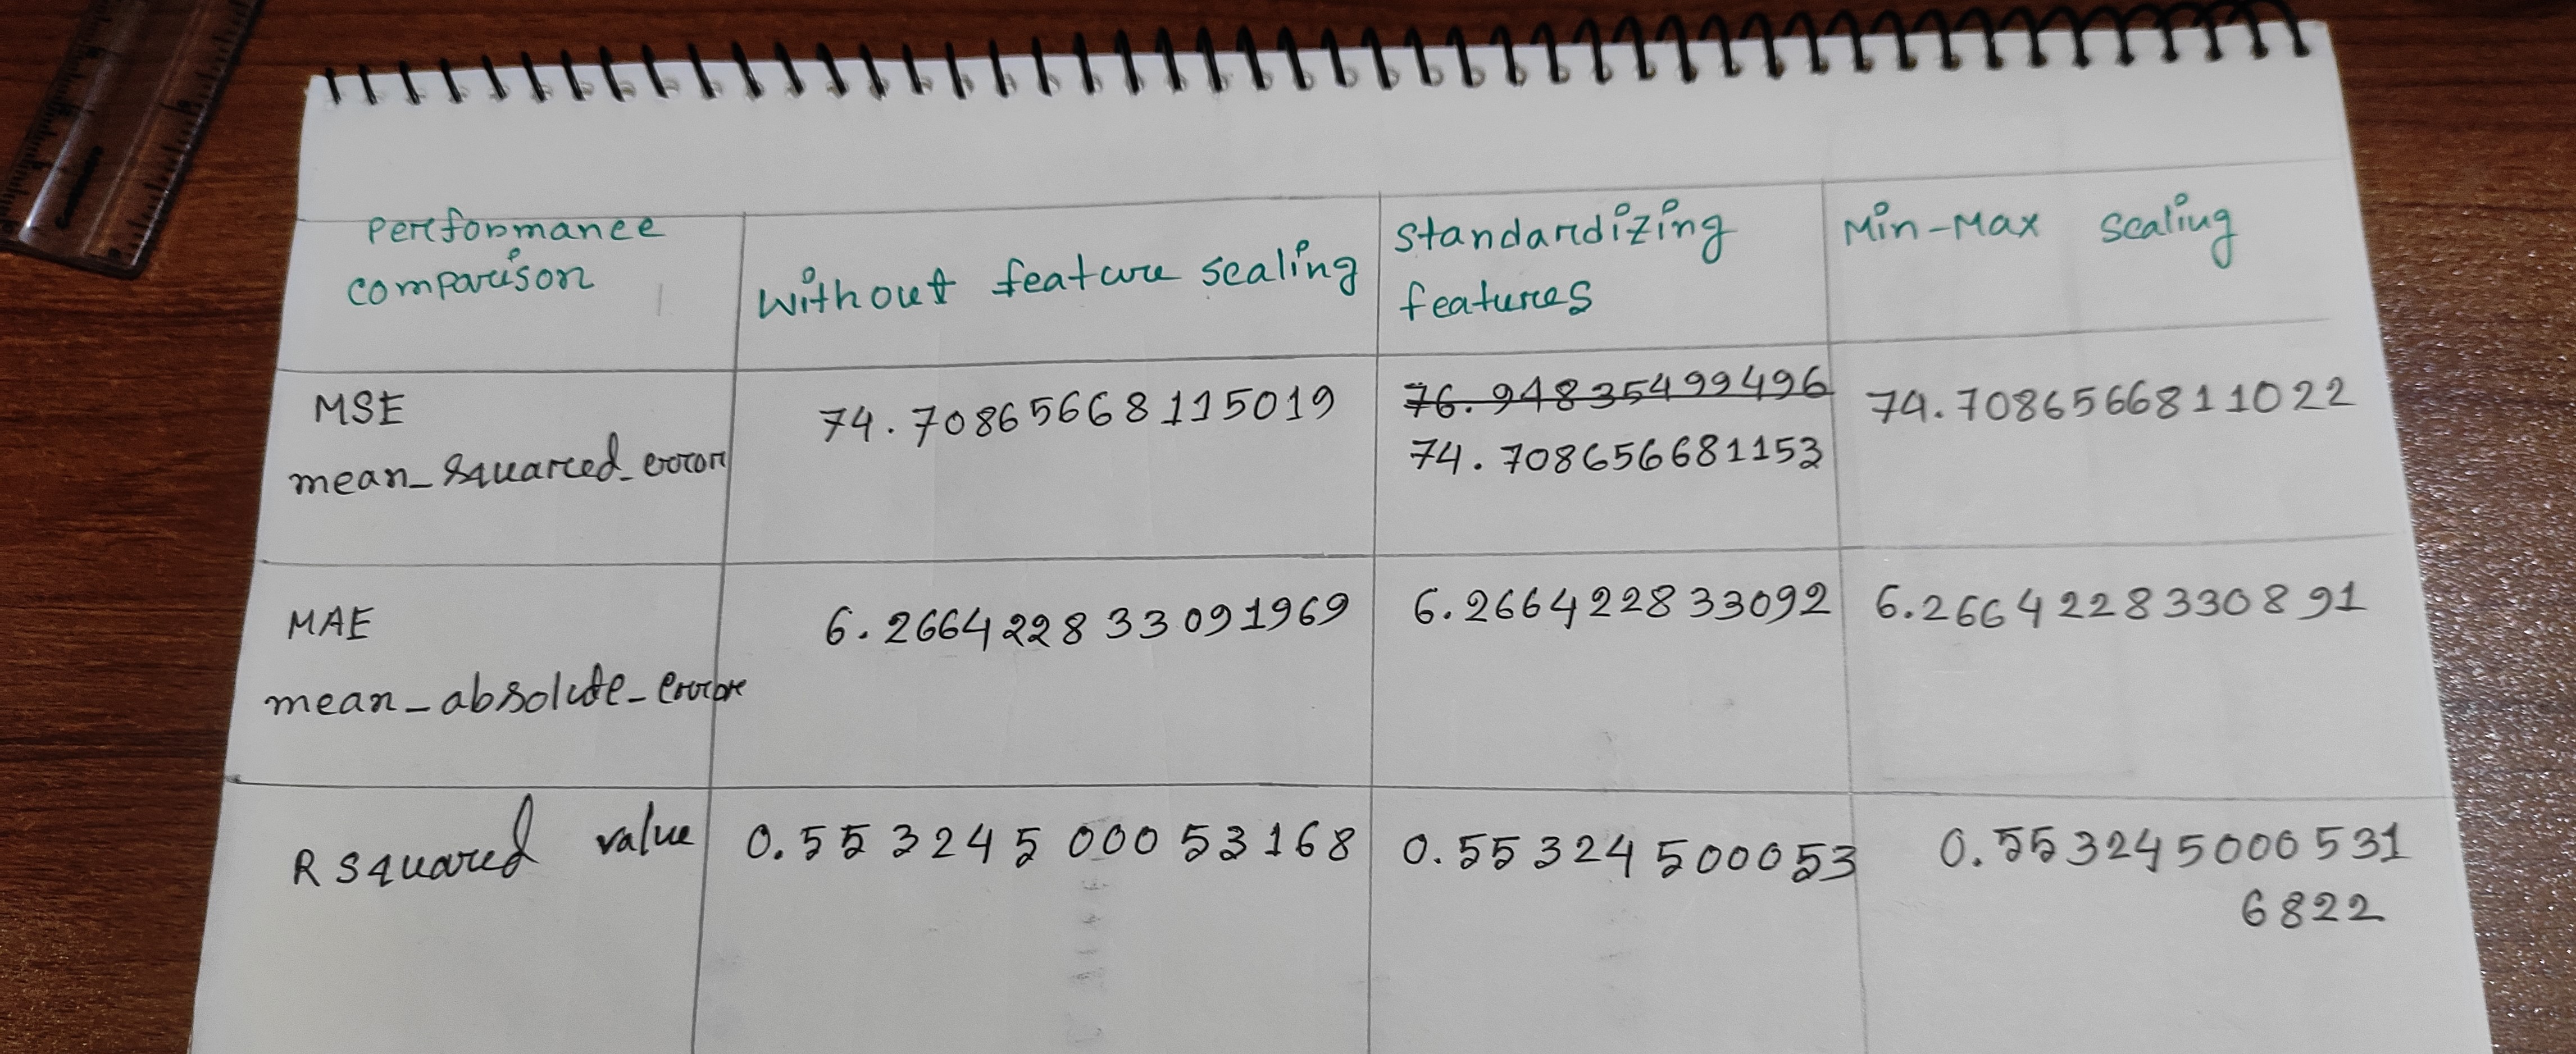 Performance
comparison
without feature scaling
standardizing
features
Min-Max scaling
MSE
mean_squared_error
74.70865668115019
76.94835499496
74.708656681153
74.7086566811022
MAE
mean_absolute_error
6.266422833091969
6.266422833092
6.2664228330891
R squared value
0.55324500053168
0.55324500053
0.553245000531
6822